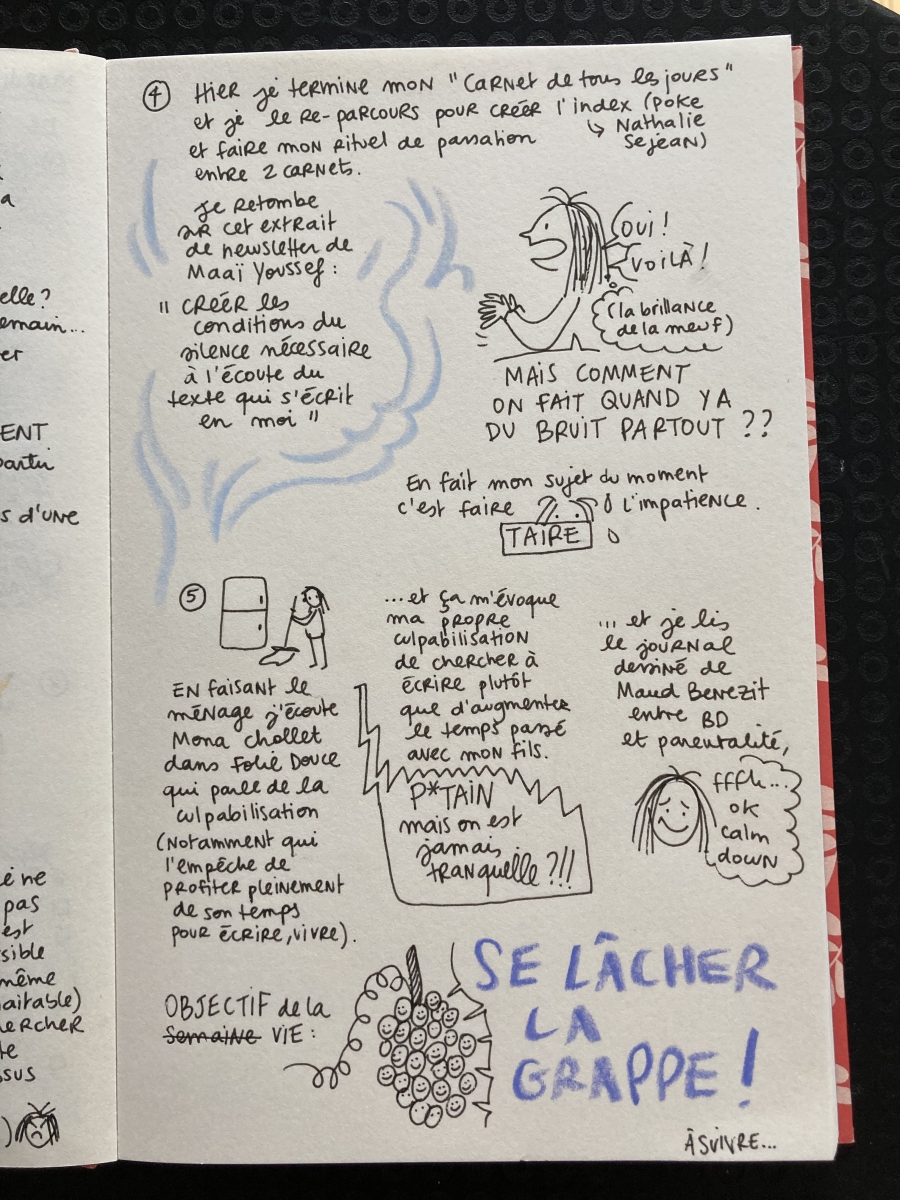 a
elle?
emain...
er
ENT
partir
s d'une
é ne
pas
est
sible
même
haitable)
hercher
te
ssus
)
④ Hier je termine mon "Carnet de tous les jours"
et je le re-parcours pour créer l'index (poke
↳ Nathalie
Sejean)
et faire mon rituel de passation
entre 2 carnets.
Je retombe
sur cet extrait
de newsletter de
Maaï Youssef :
" Créer les
conditions du
silence nécessaire
à l'écoute du
texte qui s'écrit
en moi "
Oui !
Voilà !
(la brillance
de la meuf)
MAIS COMMENT
ON FAIT QUAND YA
DU BRUIT PARTOUT ??
En fait mon sujet du moment
c'est faire
TAIRE
l'impatience.
⑤
En faisant le
ménage j'écoute
Mona Chollet
dans Folie Douce
qui parle de la
culpabilisation
(Notamment qui
l'empêche de
profiter pleinement
de son temps
pour écrire, vivre).
...et ça m'évoque
ma propre
culpabilisation
de chercher à
écrire plutôt
que d'augmenter
le temps passé
avec mon fils.
P*TAIN
mais on est
jamais
tranquelle ?!!
... et je lis
le journal
dessiné de
Maud Benezit
entre BD
et parentalité,
fffh...
ok
calm
down
OBJECTIF de la
Semaine VIE :
SE LÂCHER
LA
GRAPPE !
À SUIVRE...